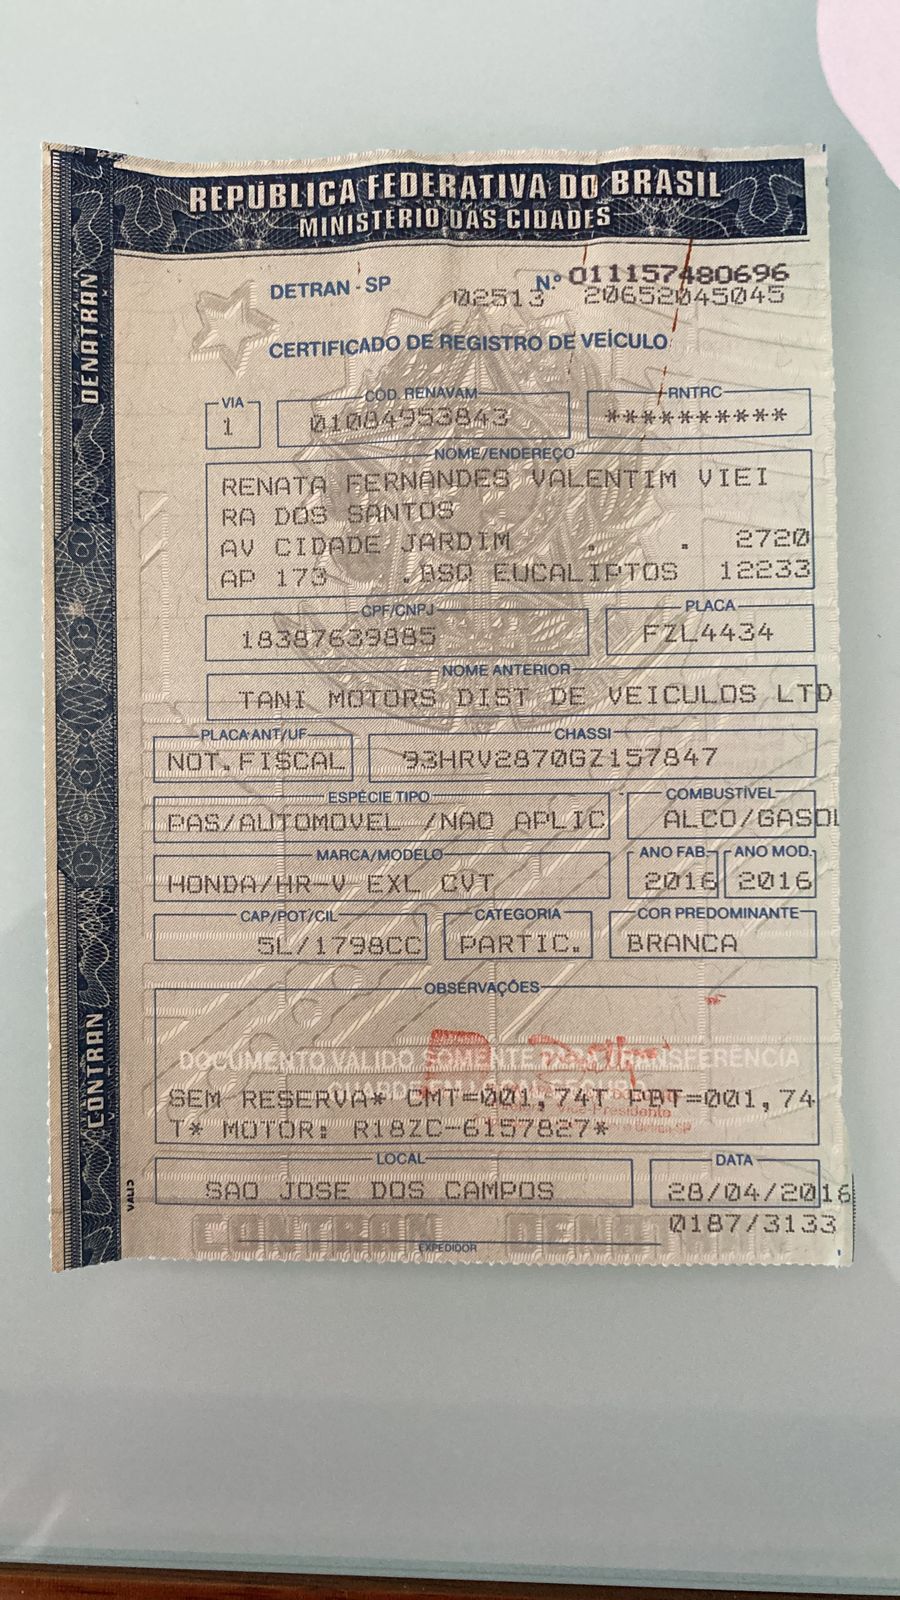 REPÚBLICA FEDERATIVA DO BRASIL
MINISTÉRIO DAS CIDADES
DENATRAN
DETRAN - SP
Nº 011157480696
02513 20652045045
CERTIFICADO DE REGISTRO DE VEÍCULO
VIA CÓD. RENAVAM RNTRC
1 01084953843 **********
NOME/ENDEREÇO
RENATA FERNANDES VALENTIM VIEI
RA DOS SANTOS
AV CIDADE JARDIM . . 2720
AP 173 .BSQ EUCALIPTOS 12233
CPF/CNPJ PLACA
18387639885 FZL4434
NOME ANTERIOR
TANI MOTORS DIST DE VEICULOS LTD
PLACA ANT/UF CHASSI
NOT.FISCAL 93HRV2870GZ157847
ESPÉCIE TIPO COMBUSTÍVEL
PAS/AUTOMOVEL /NAO APLIC ALCO/GASOL
MARCA/MODELO ANO FAB. ANO MOD.
HONDA/HR-V EXL CVT 2016 2016
CAP/POT/CIL CATEGORIA COR PREDOMINANTE
5L/1798CC PARTIC. BRANCA
OBSERVAÇÕES
DOCUMENTO VÁLIDO SOMENTE PARA TRANSFERÊNCIA
SEM RESERVA* CMT=001,74T PBT=001,74
Vice-Presidente
T* MOTOR: R18ZC-6157827*
LOCAL DATA
SAO JOSE DOS CAMPOS 28/04/2016
0187/3133
CONTRAN DENATRAN
EXPEDIDOR
CONTRAN